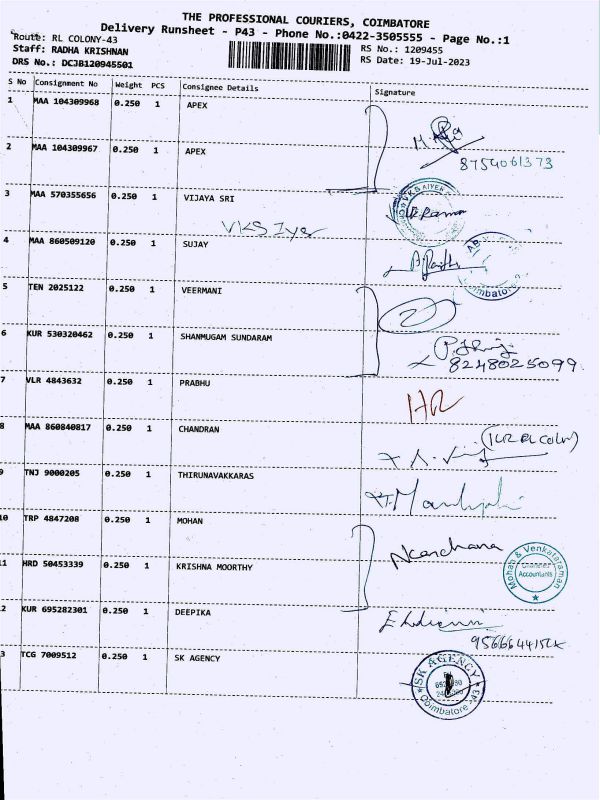 THE PROFESSIONAL COURIERS, COIMBATORE
Delivery Runsheet - P43 - Phone No.:0422-3505555 - Page No.:1
Route: RL COLONY-43
RS No.: 1209455
Staff: RADHA KRISHNAN
RS Date: 19-Jul-2023
DRS No.: DCJB120945501
S No Consignment No Weight PCS Consignee Details Signature
1 MAA 104309968 0.250 1 APEX
2 MAA 104309967 0.250 1 APEX
8754061373
3 MAA 570355656 0.250 1 VIJAYA SRI
VKS Iyer
4 MAA 860509120 0.250 1 SUJAY
5 TEN 2025122 0.250 1 VEERMANI
2
6 KUR 530320462 0.250 1 SHANMUGAM SUNDARAM
8248025099
7 VLR 4843632 0.250 1 PRABHU
HR
8 MAA 860840817 0.250 1 CHANDRAN
9 TNJ 9000205 0.250 1 THIRUNAVAKKARAS
10 TRP 4847208 0.250 1 MOHAN
Kanchana
Mohan & Venkataraman
Chartered
Accountants
11 HRD 50453339 0.250 1 KRISHNA MOORTHY
2 KUR 695282301 0.250 1 DEEPIKA
3 TCG 7009512 0.250 1 SK AGENCY
SK AGENCY
Coimbatore -43